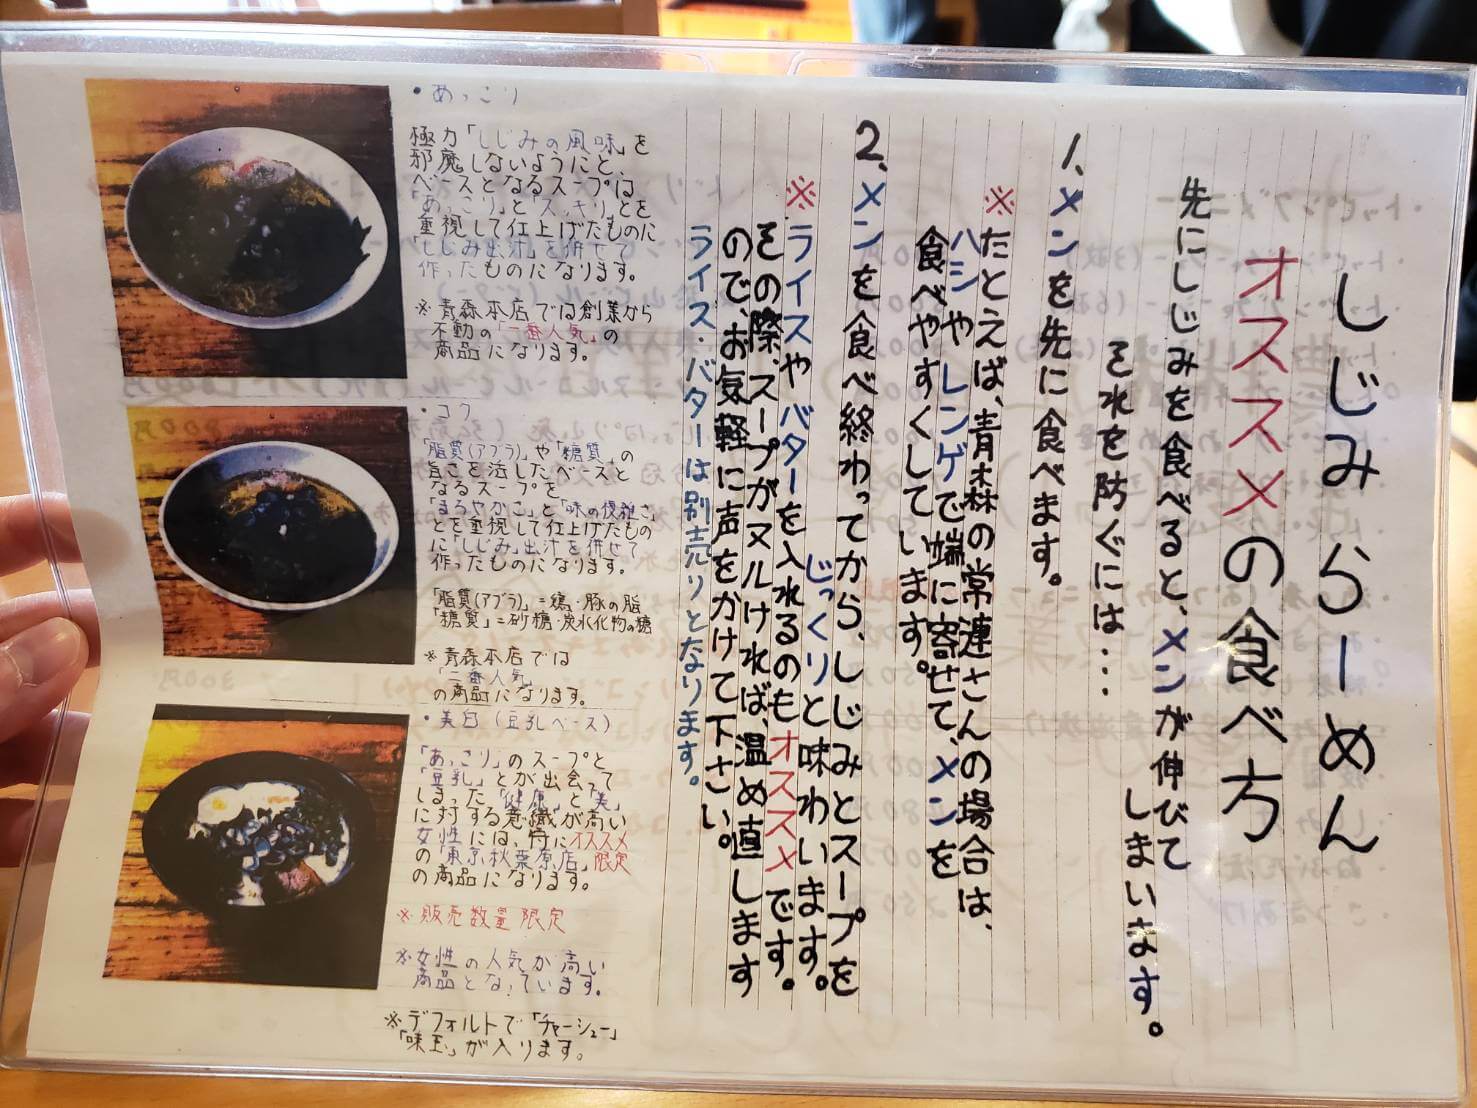 しじみらーめん
オススメの食べ方
先にしじみを食べると、メンが伸びて
しまいます。
それを防ぐには…
1、メンを先に食べます。
※たとえば、青森の常連さんの場合は、
ハシやレンゲで端に寄せて、メンを
食べやすくしています。
2、メンを食べ終わってから、しじみとスープを
じっくりと味わいます。
※ライスやバターを入れるのもオススメです。
その際、スープがヌルければ、温め直します
ので、お気軽に声をかけて下さい。
ライス・バターは別売りとなります。
・あっこり
極力「しじみの風味」を
邪魔しないようにと、
ベースとなるスープは
「あっこり」と「スッキリ」とを
重視して仕上げたものに
「しじみ出汁」を併せて
作ったものになります。
※青森本店では創業から
不動の「一番人気」の
商品になります。
・コク
「脂質(アブラ)」や「糖質」の
旨さを活したベースと
なるスープを
「まろやかさ」と「味の複雑さ」
とを重視して仕上げたもの
に「しじみ」出汁を併せて
作ったものになります。
「脂質(アブラ)」=鶏・豚の脂
「糖質」=砂糖・炭水化物の糖
※青森本店では
「二番人気」
の商品になります。
・美白(豆乳ベース)
「あっこり」のスープと
「豆乳」とが出会って
しまった「健康」と「美」
に対する意識が高い
女性には、特にオススメ
の「東京秋葉原店」限定
の商品になります。
※販売数量限定
※女性の人気が高い
商品となっています。
※デフォルトで「チャーシュー」
「味玉」が入ります。